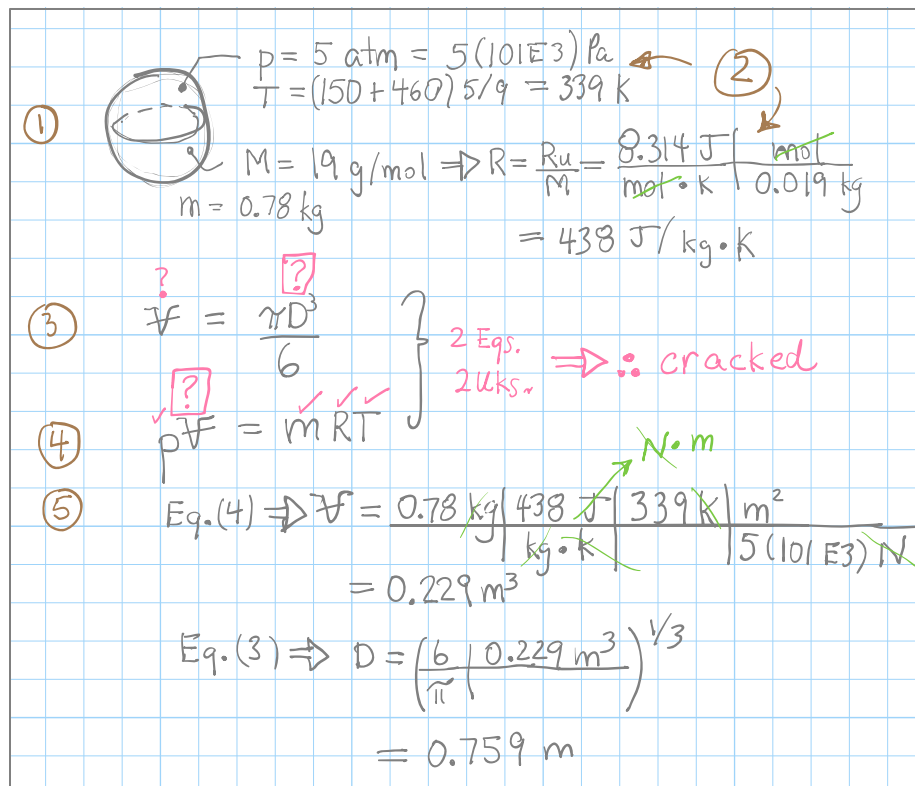 p = 5 atm = 5(101E3) Pa
②
T = (150 + 460) 5/9 = 339 K
①
M = 19 g/mol ⇒ R = Ru/M = 8.314 J/mol·K | mol/0.019 kg
m = 0.78 kg
= 438 J/kg·K
? ?
③ V = πD³/6
2 Eqs.
2 Uks. ⇒ ∴ cracked
?
④ pV = mRT
N·m
⑤ Eq.(4) ⇒ V = 0.78 kg | 438 J/kg·K | 339 K | m²/5(101E3) N
= 0.229 m³
Eq.(3) ⇒ D = (6/π | 0.229 m³)^1/3
= 0.759 m